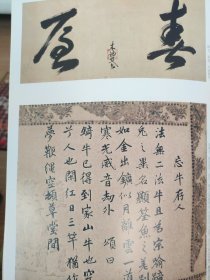 春屋
忘牛存人
法無二法牛且為宗喻蹄
兔之異名顯筌魚之差別
如金出鑛似月離雲一道
寒光威音劫外 頌曰
騎牛已得到家山牛也空
兮人也閑紅日三竿猶作
夢鞭繩空頓草堂間